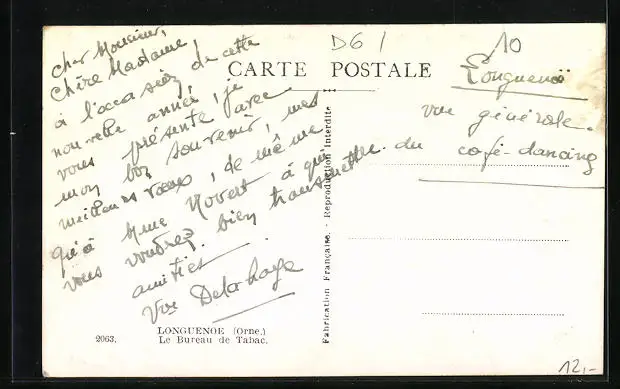 D61
10
CARTE POSTALE
Cher Monsieur,
Chère Madame,
à l'occasion de cette
nouvelle année, je
vous présente avec
mon bon souvenir, mes
meilleurs vœux, de même
qu'à Mme à qui
vous voudrez bien transmettre.
amitiés
Vve Delahaye
Longuenoë
vue générale.
du café-dancing
Fabrication Française. - Reproduction Interdite
LONGUENOE (Orne.)
2063. Le Bureau de Tabac.
12,-